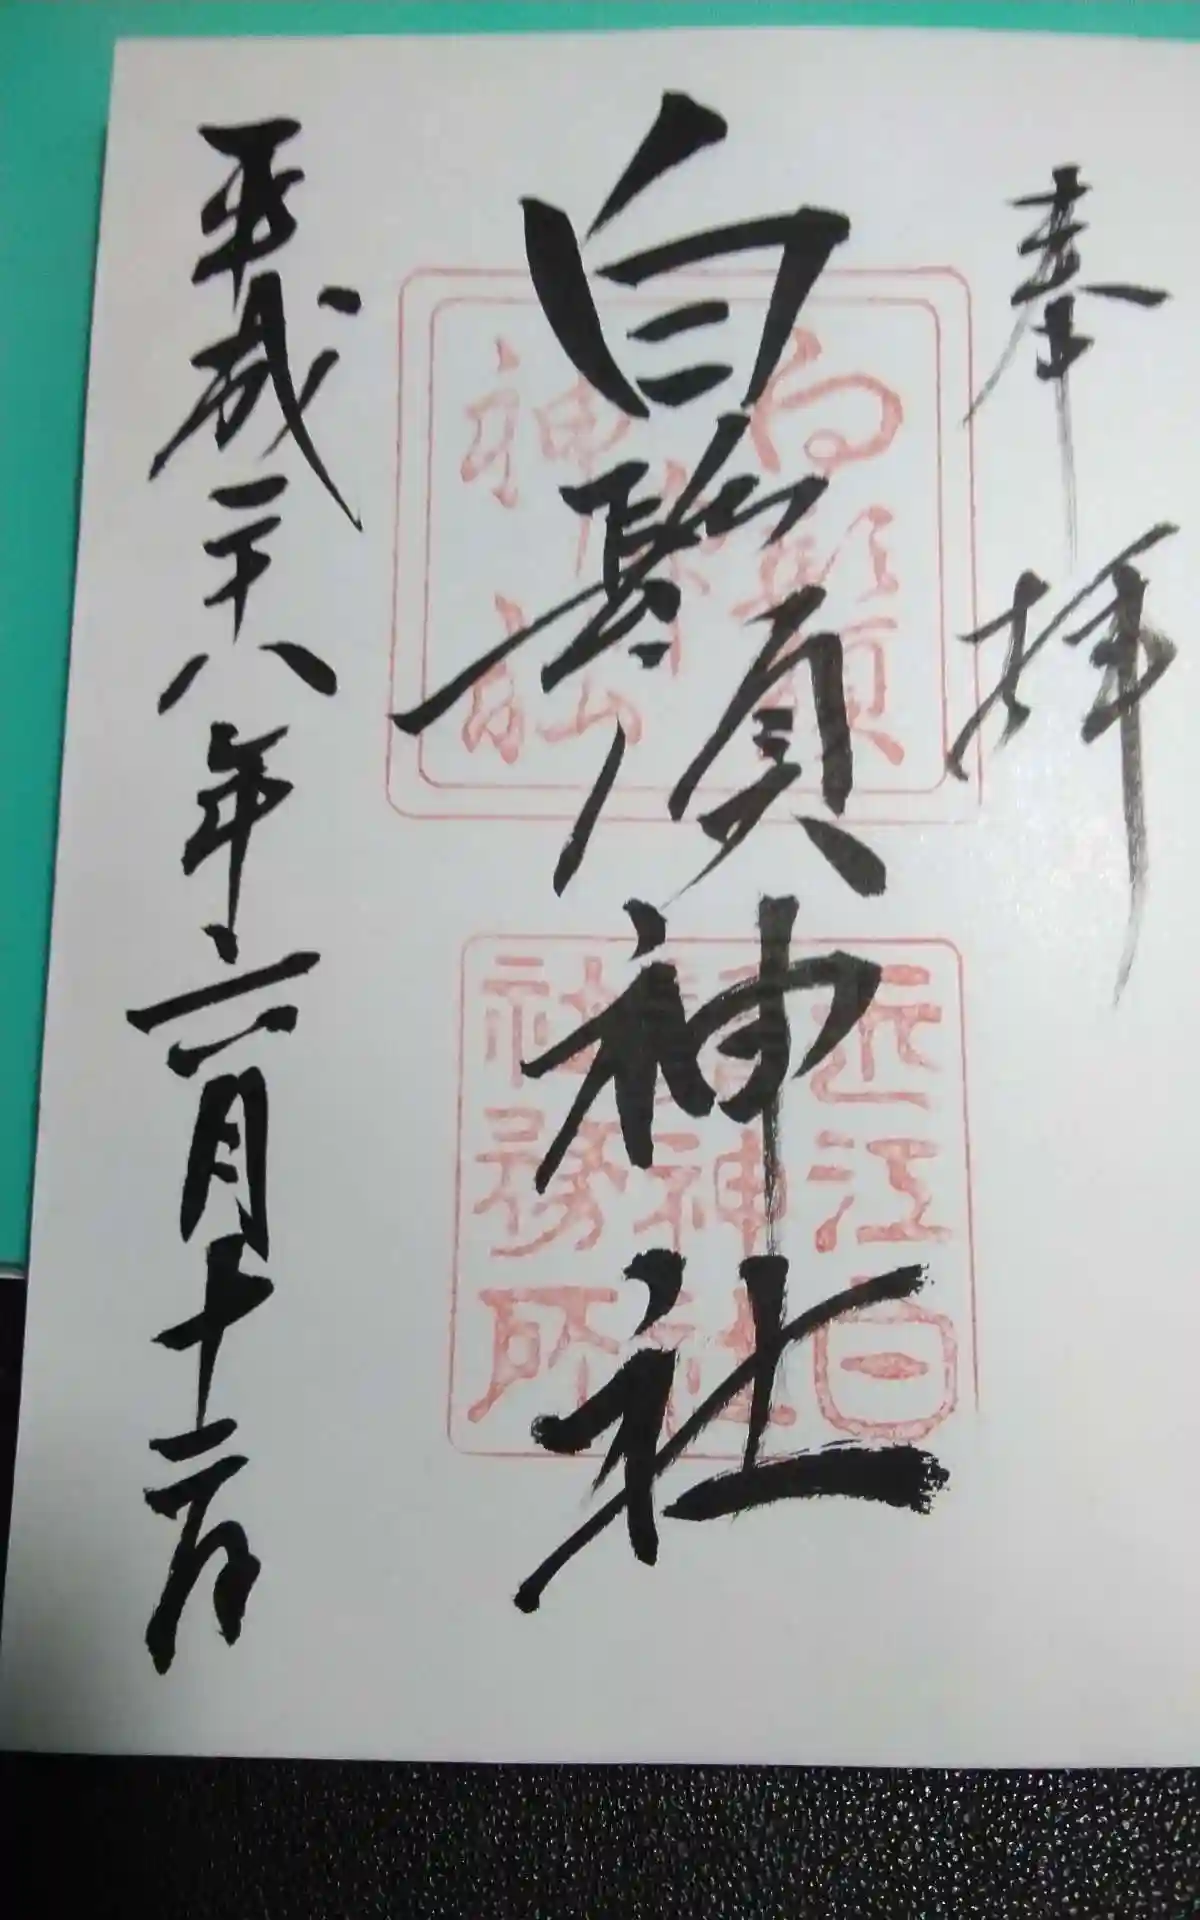 奉拝
白鬚神社
平成二十八年六月十二日
白鬚
神社
近江白
鬚神社
社務所